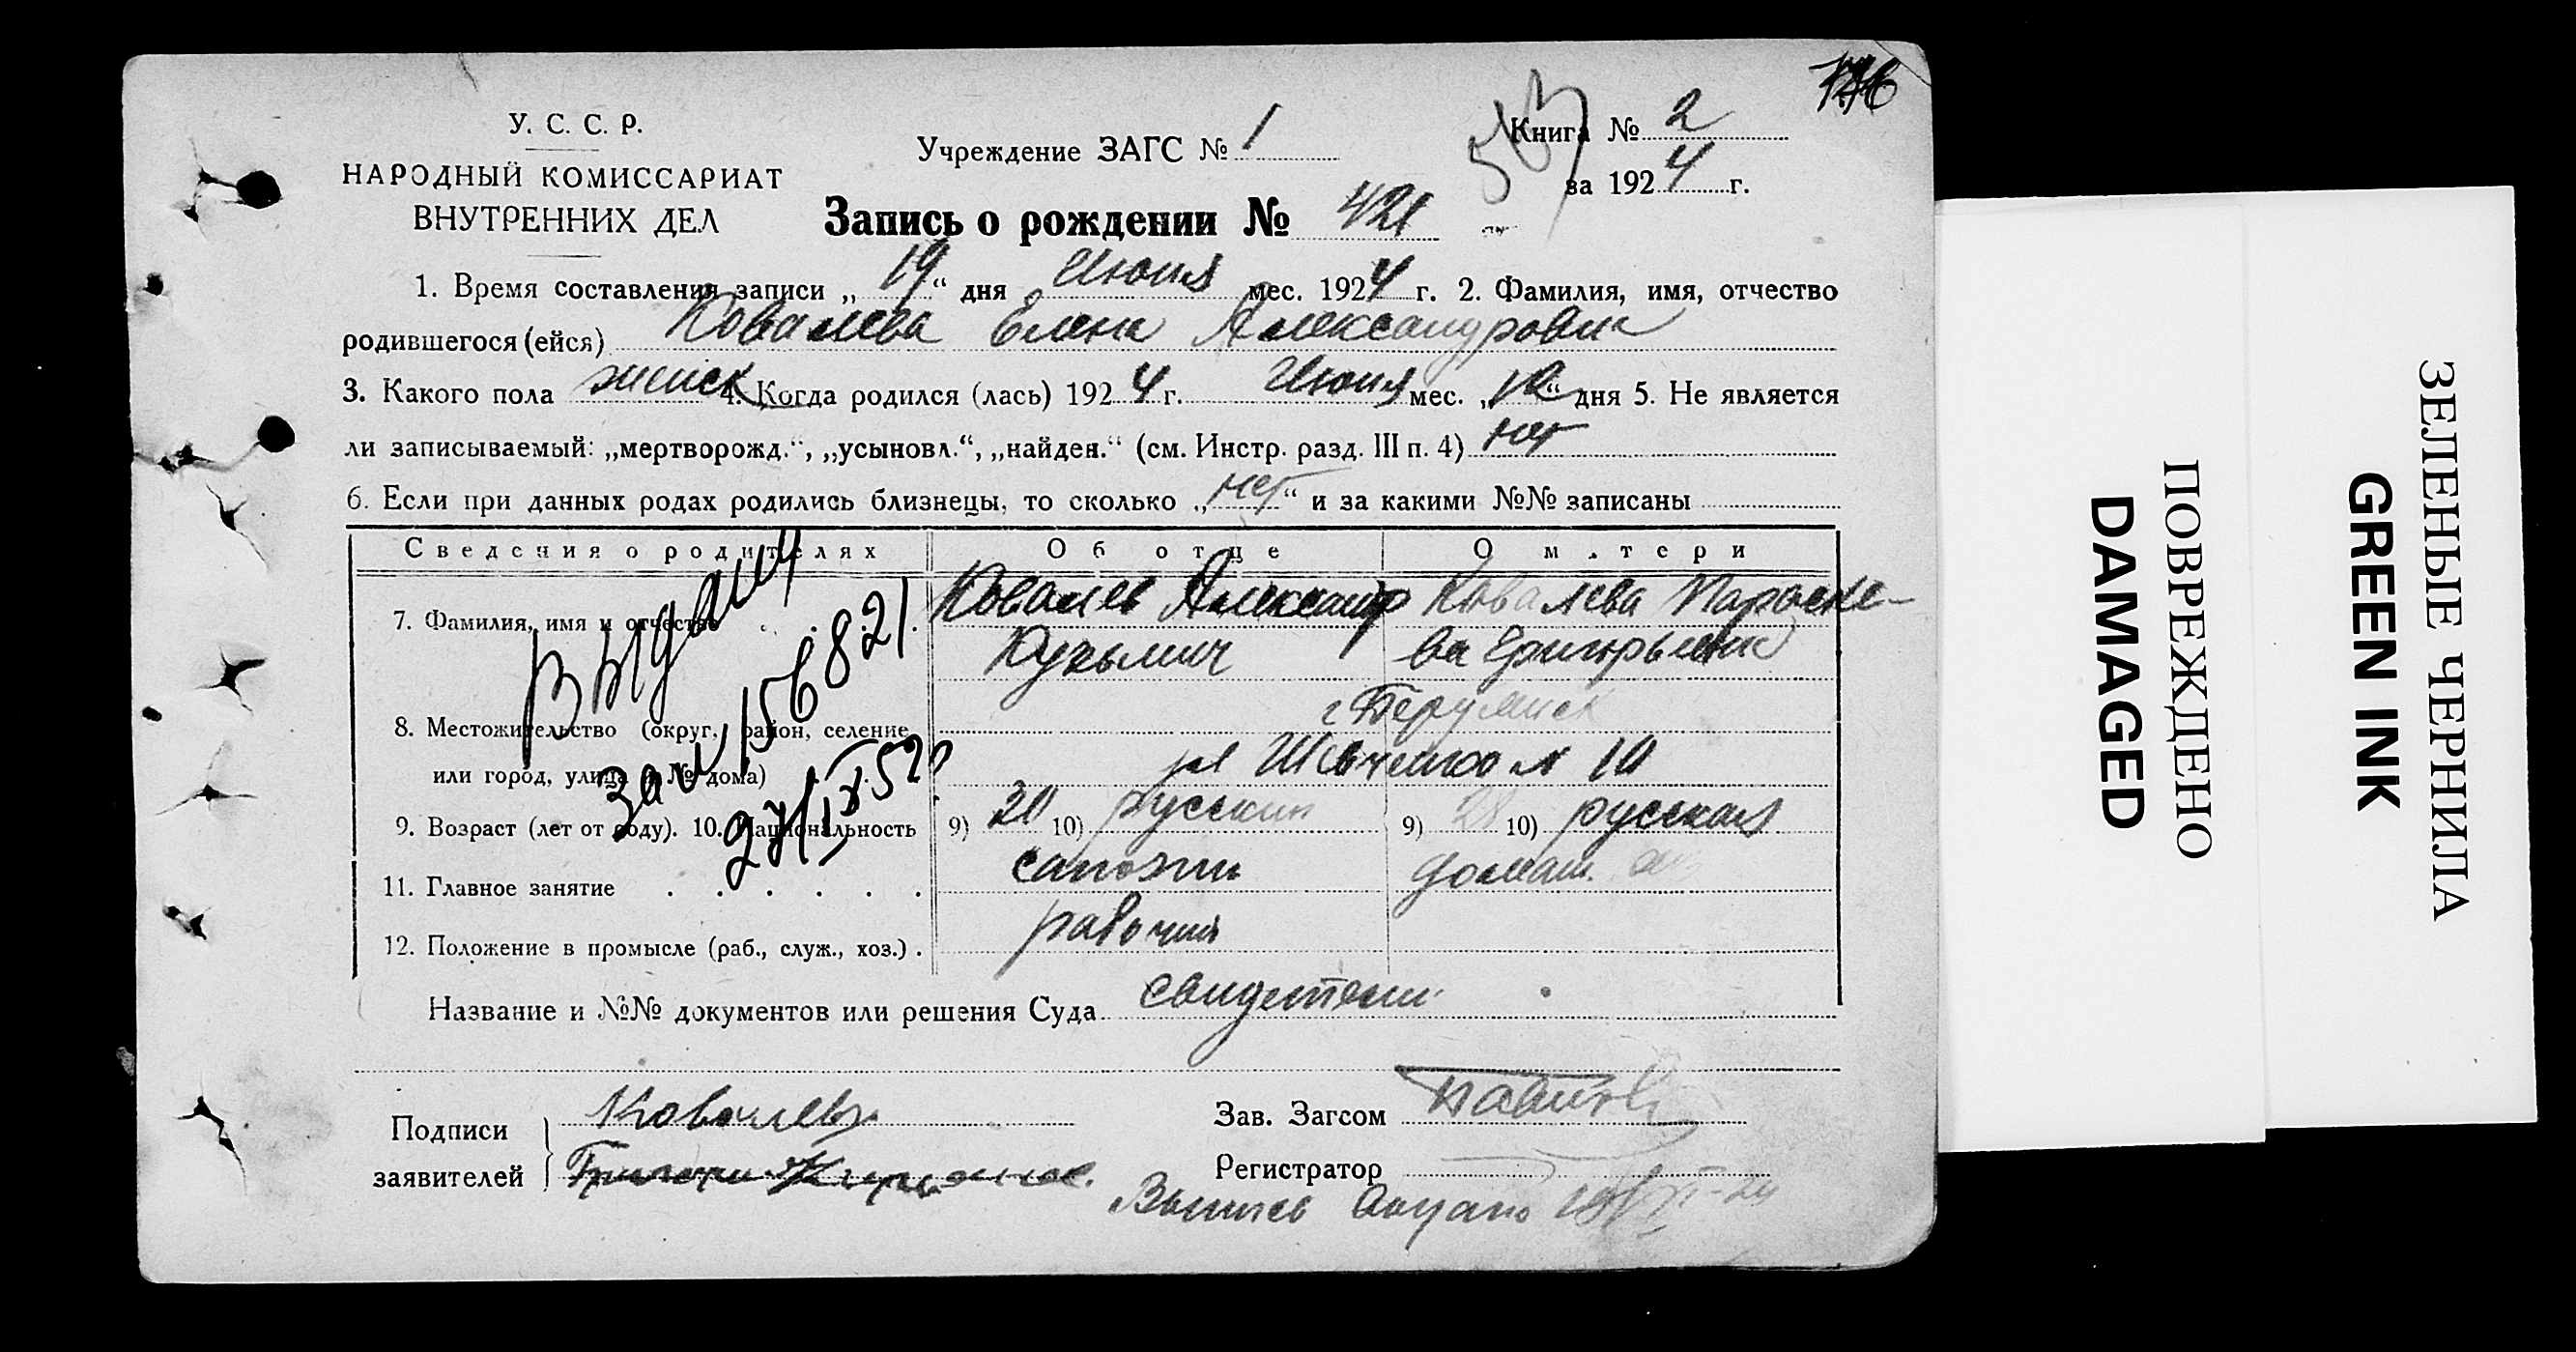 У. С. С. Р.
НАРОДНЫЙ КОМИССАРИАТ
ВНУТРЕННИХ ДЕЛ
Учреждение ЗАГС № 1
Книга № 2
за 1924 г.
Запись о рождении № 421
1. Время составления записи „19“ дня Июня мес. 1924 г. 2. Фамилия, имя, отчество
родившегося (ейся) Ковалева Елена Александровна
3. Какого пола женск 4. Когда родился (лась) 1924 г. Июня мес. „ “ дня 5. Не является
ли записываемый: „мертворожд.“, „усыновл.“, „найден.“ (см. Инстр. разд. III п. 4) нет
6. Если при данных родах родились близнецы, то сколько „нет“ и за какими №№ записаны
Сведения о родителях Об отце О матери
7. Фамилия, имя и отчество Ковалев Александр Ковалева Параске-
Кузьмич ва Григорьевна
8. Местожительство (округ, район, селение
или город, улица и № дома) ул Шевченко № 10
9. Возраст (лет от роду). 10. Национальность 9) 30 10) русский 9) 28 10) русская
11. Главное занятие сапожн домаш.
12. Положение в промысле (раб., служ., хоз.) рабочий
156821
Название и №№ документов или решения Суда свидетели
Подписи
заявителей
Ковалев
Зав. Загсом
Регистратор
ПОВРЕЖДЕНО
DAMAGED
ЗЕЛЕНЫЕ ЧЕРНИЛА
GREEN INK